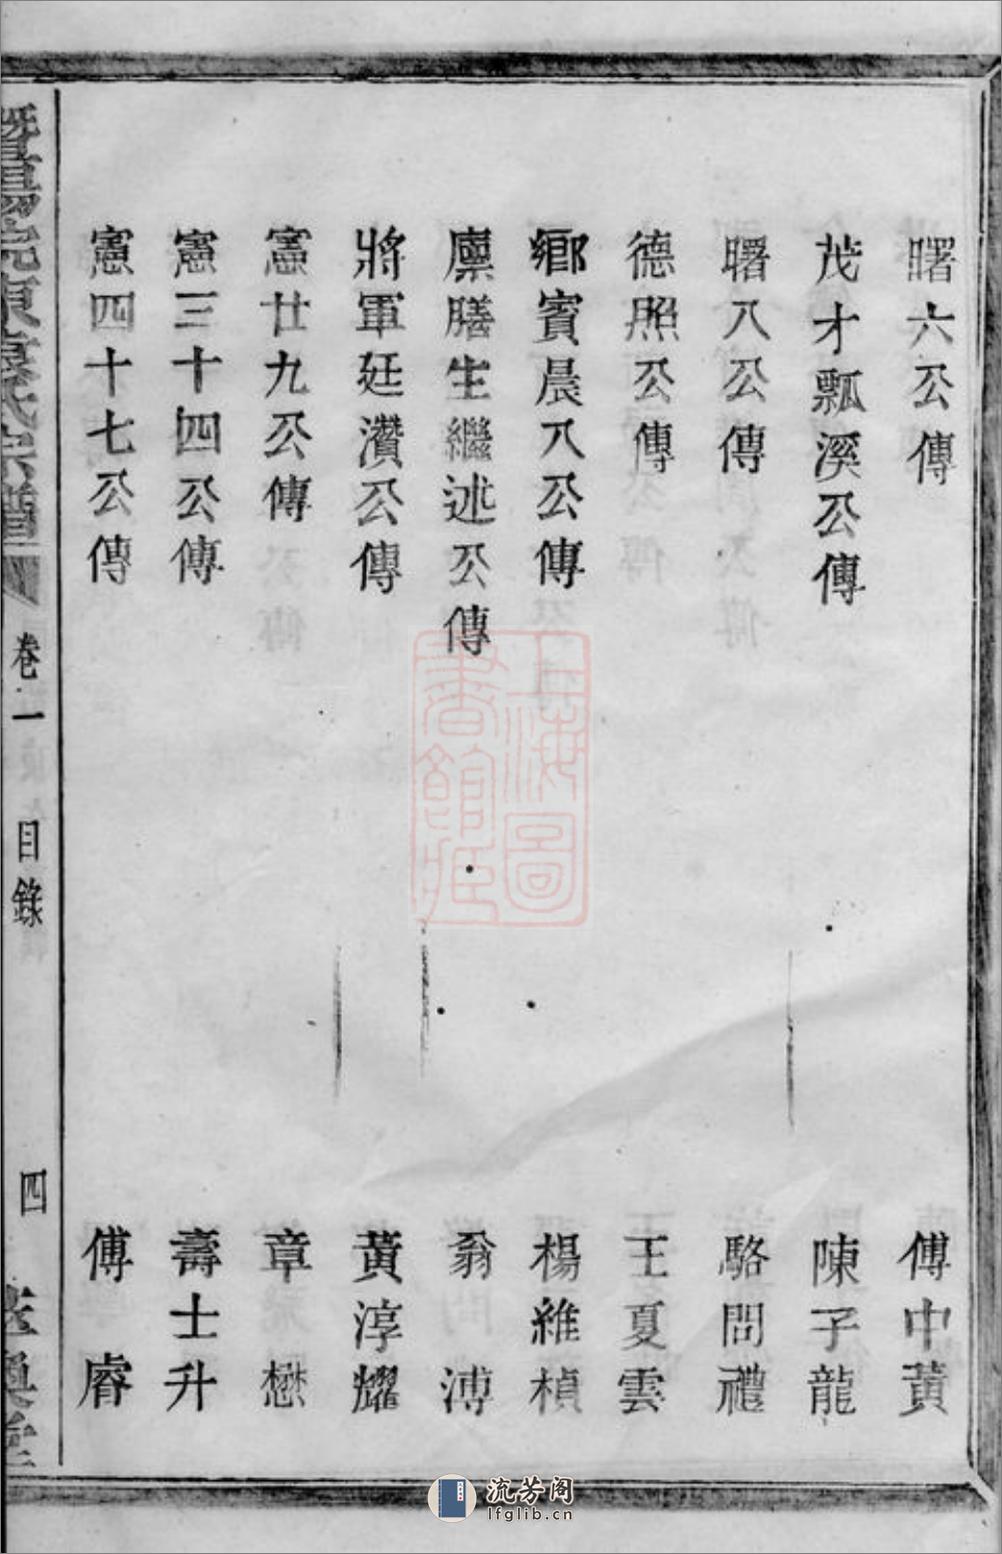 曙六公傳 傅中黃
茂才瓢溪公傳 陳子龍
曙八公傳 駱問禮
德照公傳 王夏雲
鄉賓晨八公傳 楊維楨
廪膳生繼述公傳 翁溥
將軍廷瓚公傳 黃淳耀
憲廿九公傳 章懋
憲三十四公傳 壽士升
憲四十七公傳 傅睿
卷一 目錄 四
上海圖書館藏
流芳阁
lfglib.cn